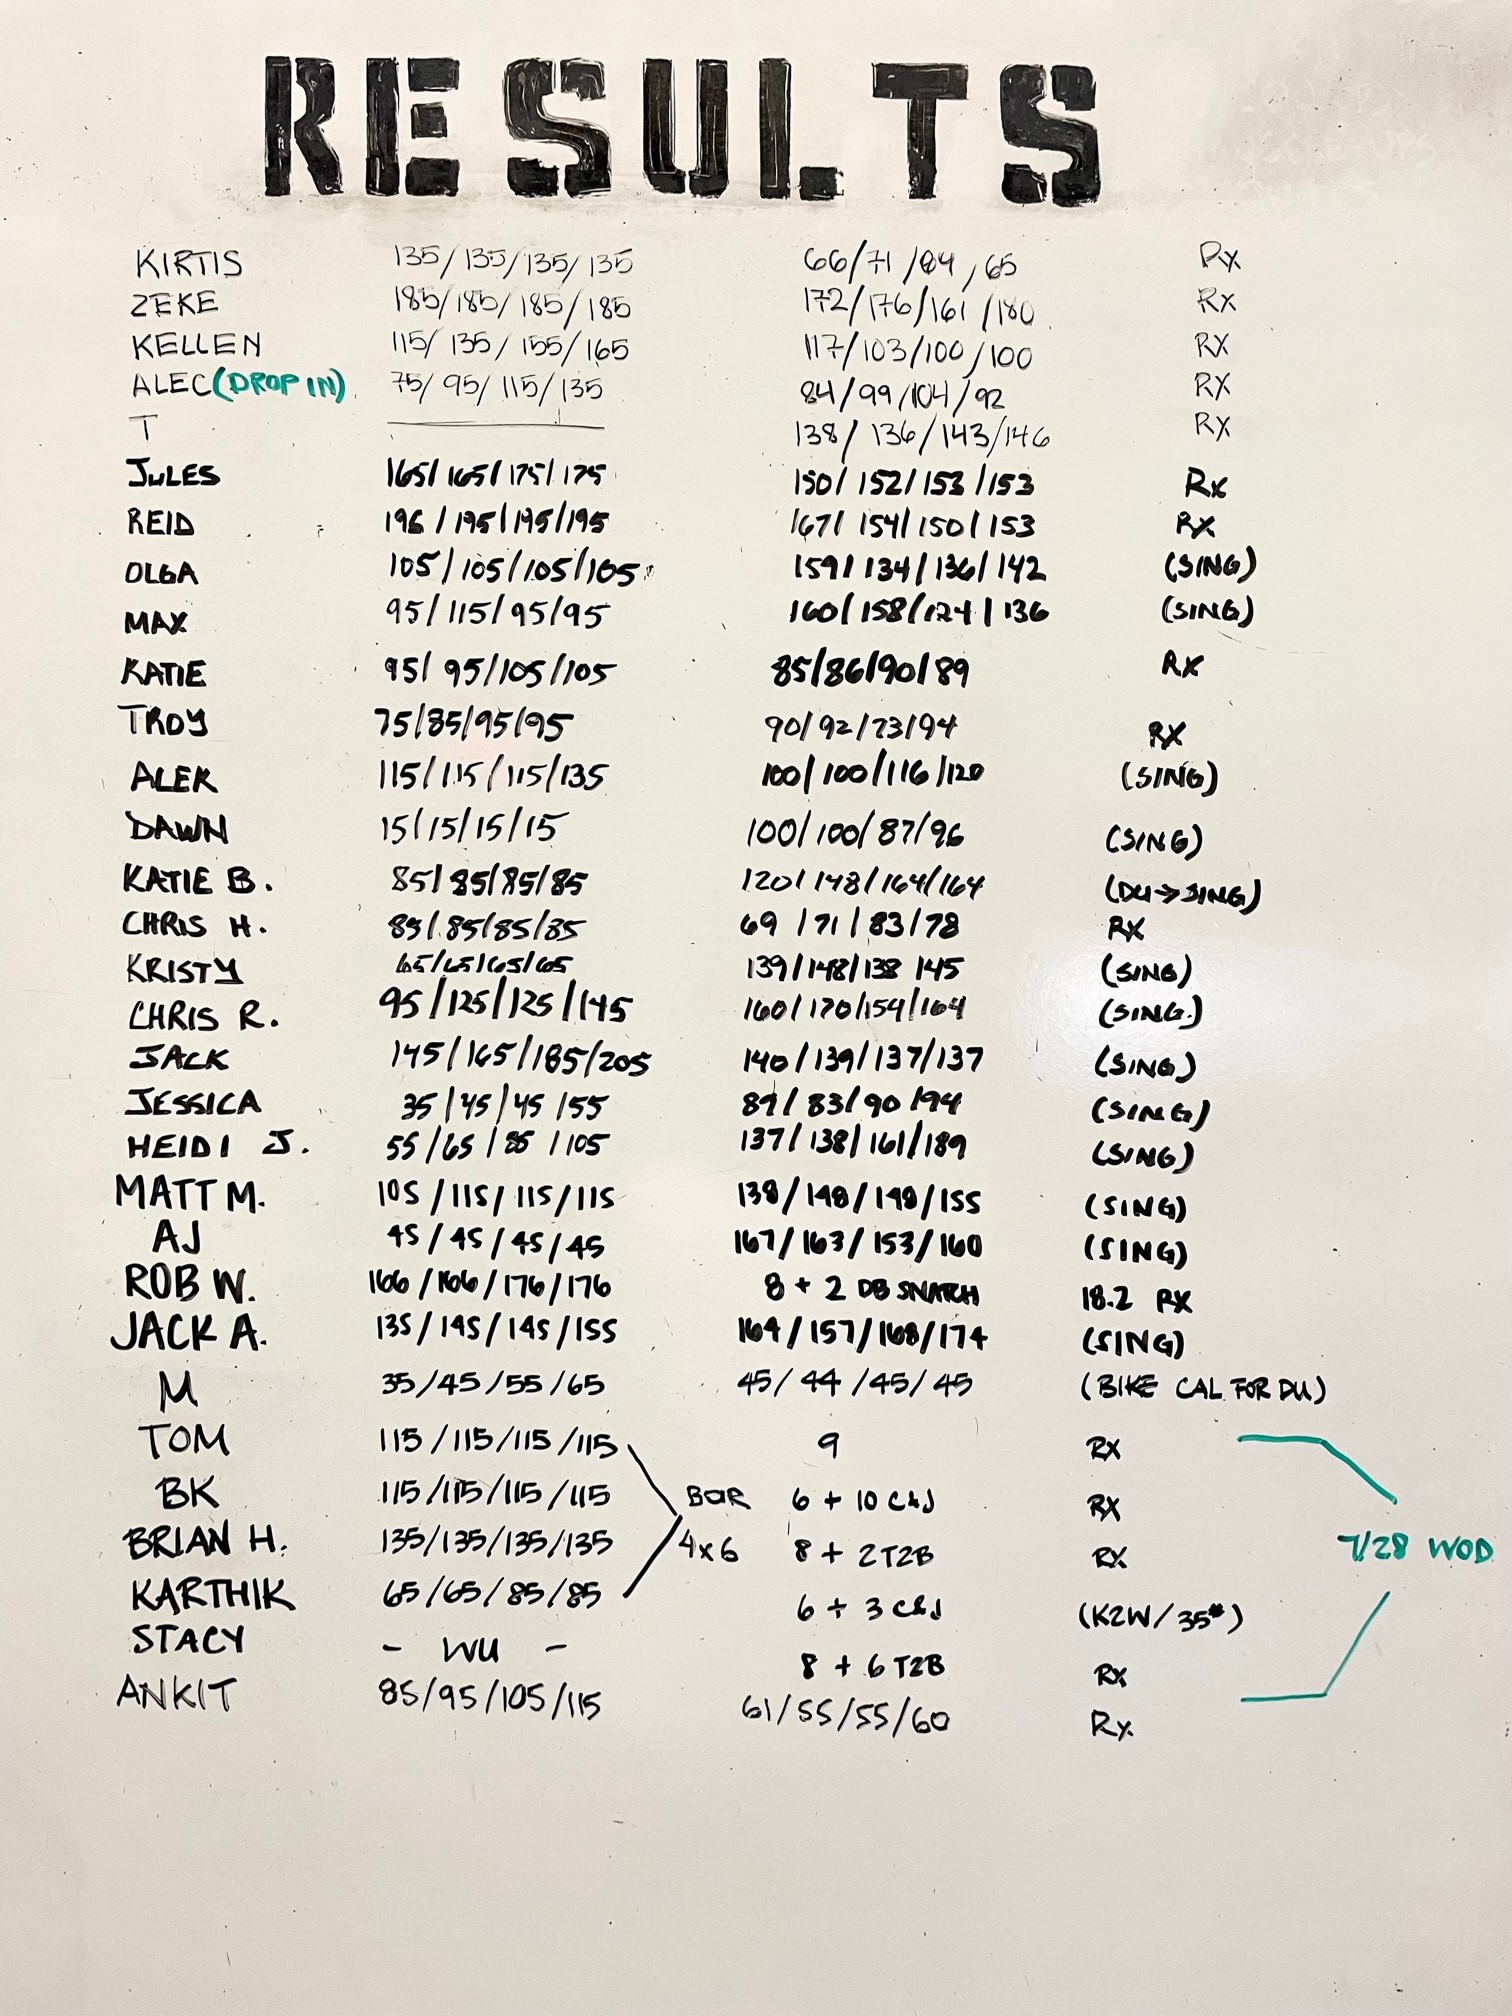 RESULTS
KIRTIS 135/135/135/135 66/71/84/65 Rx
ZEKE 185/185/185/185 172/176/161/180 Rx
KELLEN 115/135/155/165 117/103/100/100 RX
ALEC (DROP IN) 75/95/115/135 84/99/104/92 RX
T 138/136/143/146 RX
JULES 165/165/175/175 150/152/153/153 Rx
REID 195/195/195/195 167/154/150/153 RX
OLGA 105/105/105/105 159/134/136/142 (SING)
MAX 95/115/95/95 160/158/124/136 (SING)
KATIE 95/95/105/105 85/86/90/89 RX
TROY 75/85/95/95 90/92/73/94 RX
ALEK 115/115/115/135 100/100/116/120 (SING)
DAWN 15/15/15/15 100/100/87/96 (SING)
KATIE B. 85/85/85/85 120/148/164/164 (DU→SING)
CHRIS H. 85/85/85/85 69/71/83/78 RX
KRISTY 65/65/65/65 139/148/138 145 (SING)
CHRIS R. 95/125/125/145 160/170/154/164 (SING.)
JACK 145/165/185/205 140/139/137/137 (SING)
JESSICA 35/45/45/55 89/83/90/94 (SING)
HEIDI J. 55/65/85/105 137/138/161/189 (SING)
MATT M. 105/115/115/115 138/148/148/155 (SING)
AJ 45/45/45/45 167/163/153/160 (SING)
ROB W. 166/166/176/176 8 + 2 DB SNATCH 18.2 RX
JACK A. 135/145/145/155 164/157/168/174 (SING)
M 35/45/55/65 45/44/45/45 (BIKE CAL FOR DU)
TOM 115/115/115/115 9 RX
BK 115/115/115/115 BAR 6 + 10 C&J RX
BRIAN H. 135/135/135/135 4x6 8 + 2 T2B RX 7/28 WOD
KARTHIK 65/65/85/85 6 + 3 C&J (K2W/35#)
STACY - WU - 8 + 6 T2B RX
ANKIT 85/95/105/115 61/55/55/60 Rx